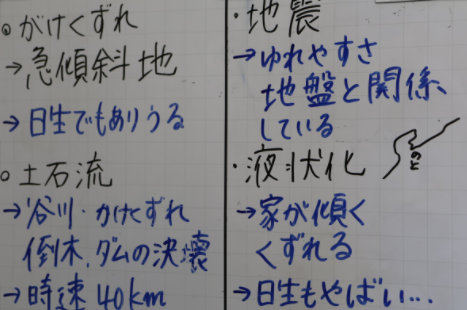 ◎がけくずれ
→急傾斜地
→日生でもありうる
○土石流
→谷川・がけくずれ
倒木、ダムの決壊
→時速40km
・地震
→ゆれやすさ
地盤と関係
している
・液状化
→家が傾く
くずれる
→日生もやばい…